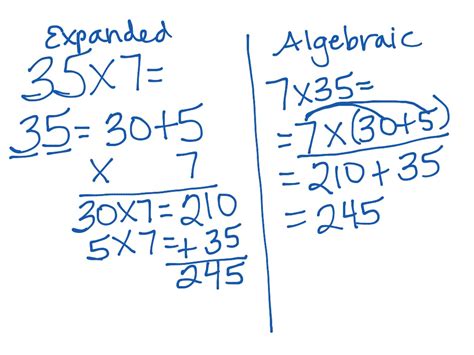 Expanded
35x7=
35=30+5
x 7
30x7=210
5x7=+35
245
Algebraic
7x35=
=7x(30+5)
=210+35
=245